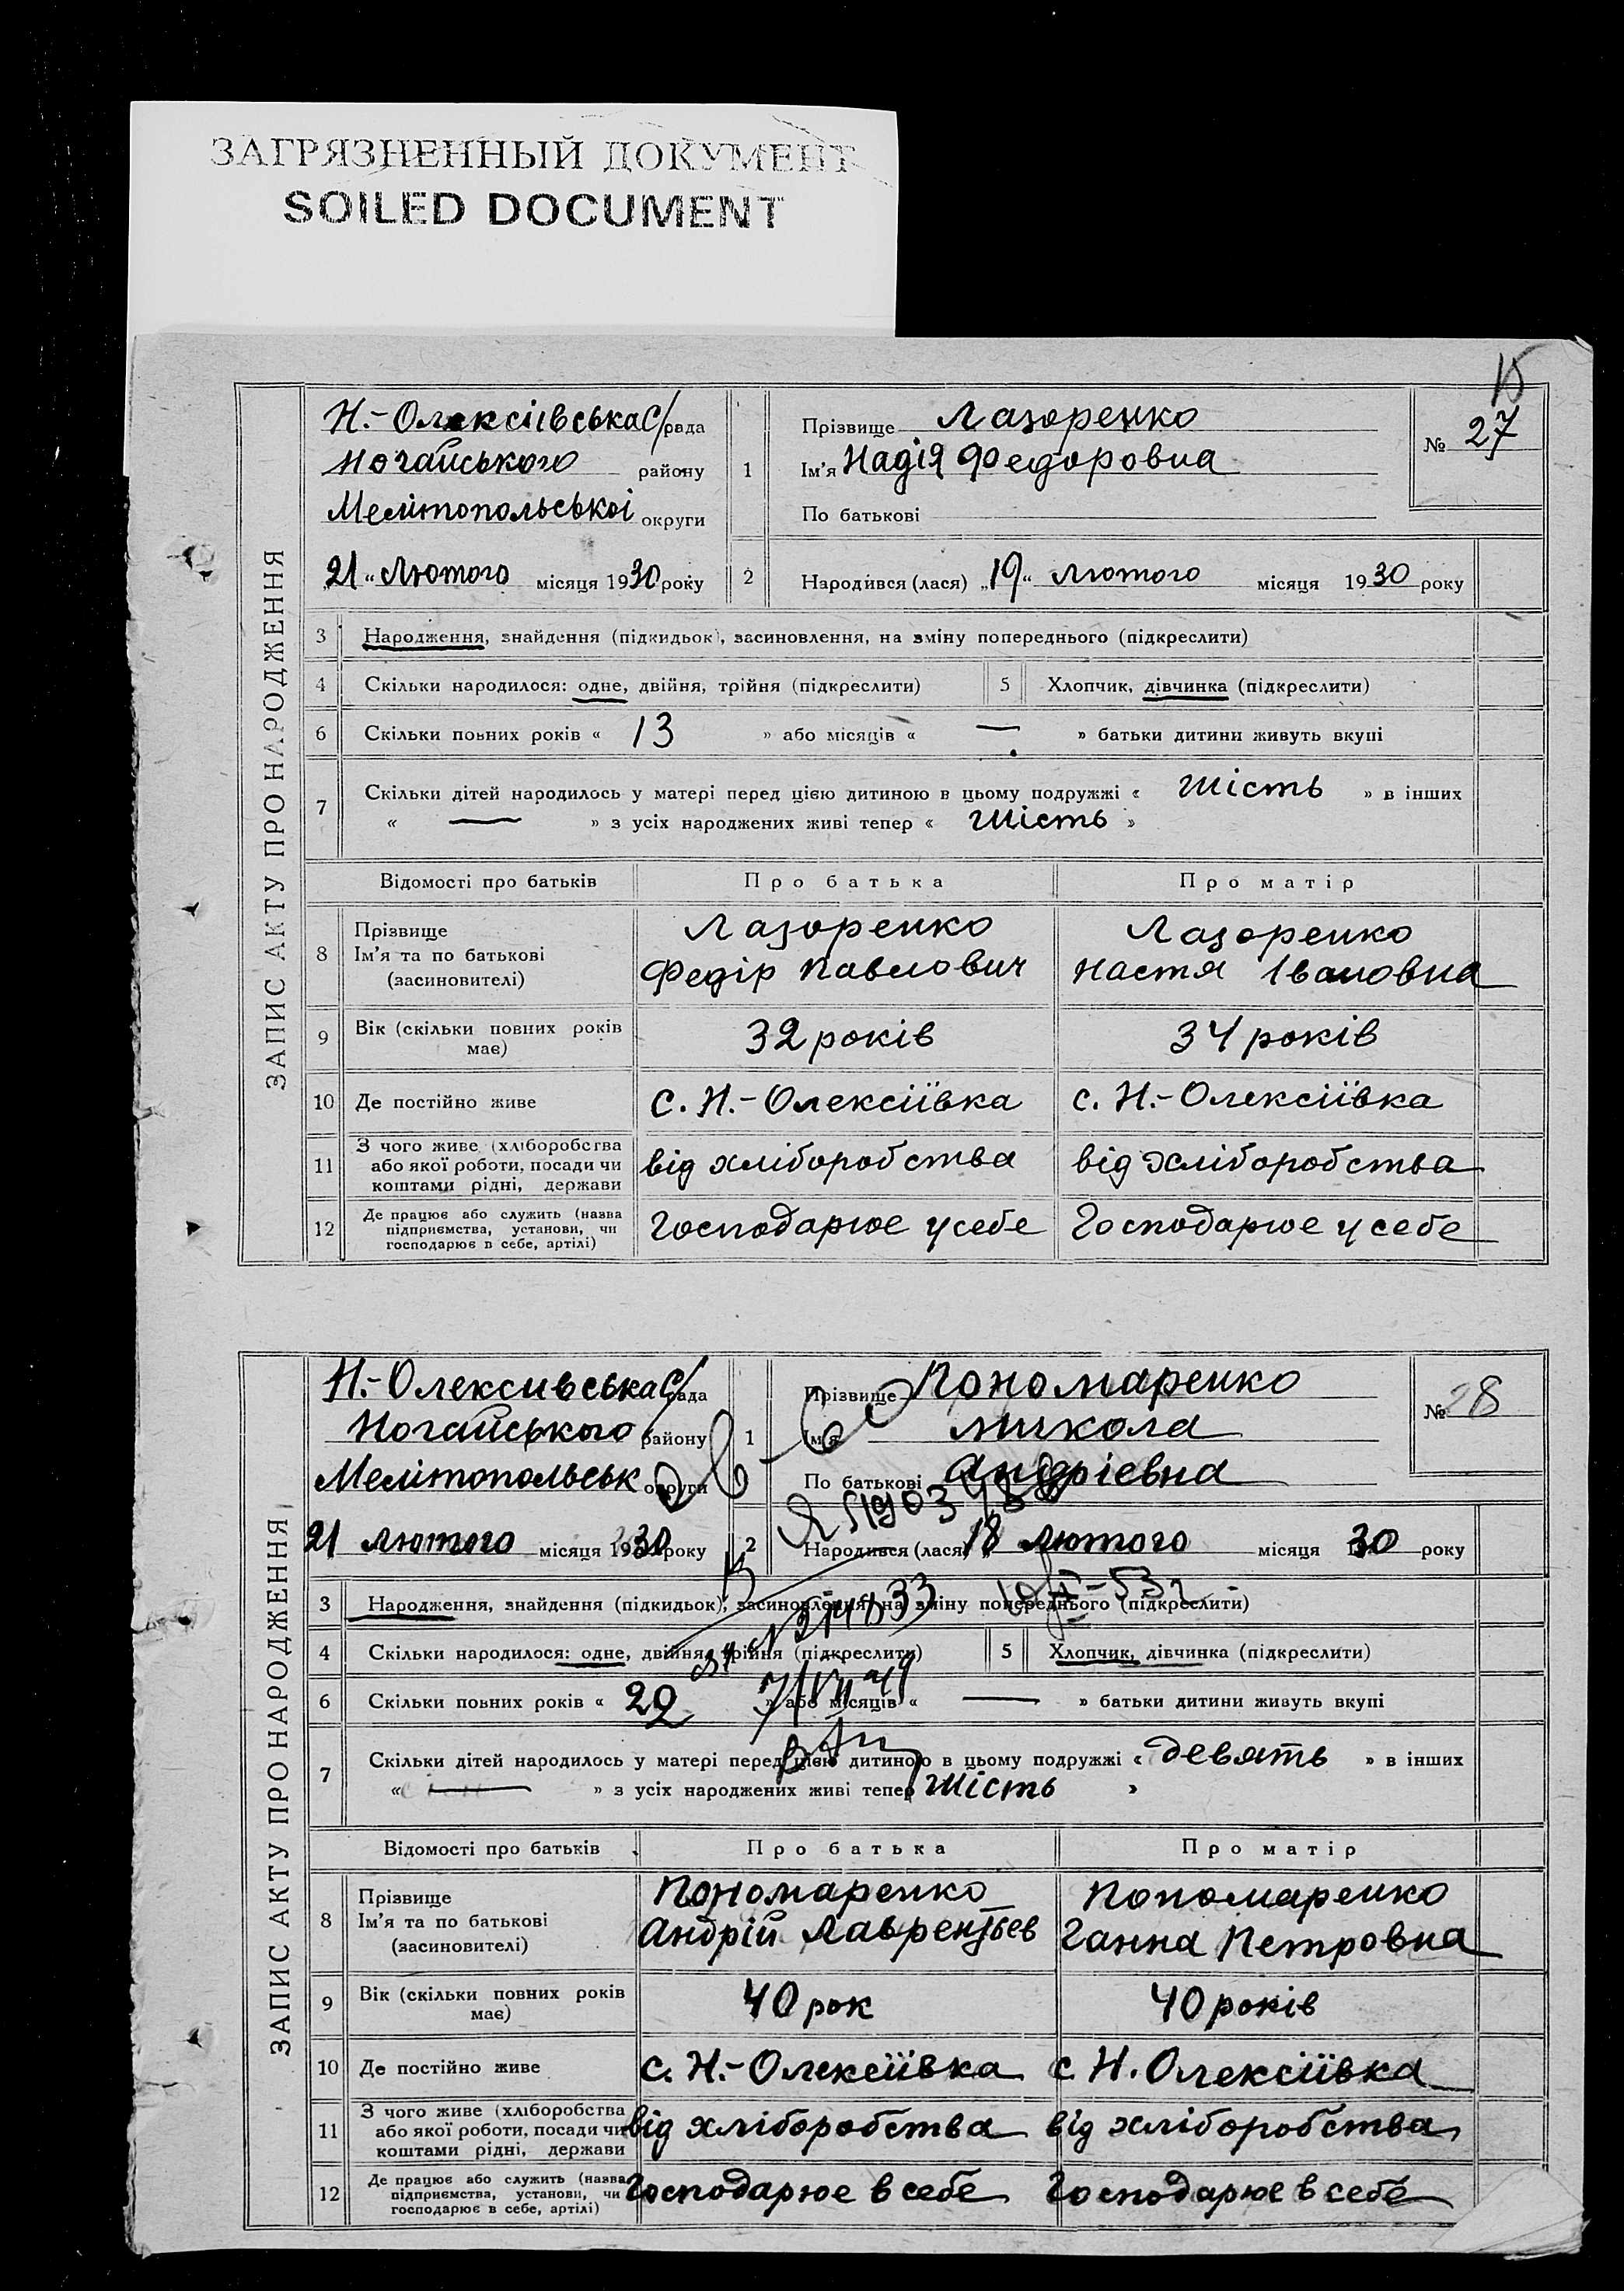 ЗАГРЯЗНЕННЫЙ ДОКУМЕНТ
SOILED DOCUMENT
15
ЗАПИС АКТУ ПРО НАРОДЖЕННЯ
Н.-Олексіївська С/рада
Ногайського району
Мелітопольської округи
„21“ Лютого місяця 1930 року
1
Прізвище Лазоренко
Ім'я Надія Федоровна
По батькові
№ 27
2
Народився (лася) „19“ Лютого місяця 1930 року
3 Народження, знайдення (підкидьок), засиновлення, на зміну попереднього (підкреслити)
4 Скільки народилося: одне, двійня, трійня (підкреслити) 5 Хлопчик, дівчинка (підкреслити)
6 Скільки повних років « 13 » або місяців « — » батьки дитини живуть вкупі
7 Скільки дітей народилось у матері перед цією дитиною в цьому подружжі « Шість » в інших
« — » з усіх народжених живі тепер « Шість »
Відомості про батьків Про батька Про матір
8 Прізвище
Ім'я та по батькові
(засиновителі)
Лазоренко
Федір Павлович
Лазоренко
Настя Івановна
9 Вік (скільки повних років
має)
32 років 34 років
10 Де постійно живе с. Н.-Олексіївка с. Н.-Олексіївка
11 З чого живе (хліборобства
або якої роботи, посади чи
коштами рідні, держави
від хліборобства від хліборобства
12 Де працює або служить (назва
підприємства, установи, чи
господарює в себе, артілі)
Господарює у себе Господарює у себе
ЗАПИС АКТУ ПРО НАРОДЖЕННЯ
Н.-Олексиївська С/рада
Ногайського району
Мелітопольськ округи
21 лютого місяця 1930 року
1
Прізвище Пономаренко
Ім'я Микола
По батькові Андріевна
№ 28
2
Народився (лася) 18 лютого місяця 30 року
3 Народження, знайдення (підкидьок), засиновлення, на зміну попереднього (підкреслити)
4 Скільки народилося: одне, двійня, трійня (підкреслити) 5 Хлопчик, дівчинка (підкреслити)
6 Скільки повних років « 22 » або місяців « — » батьки дитини живуть вкупі
7 Скільки дітей народилось у матері перед цією дитиною в цьому подружжі « девять » в інших
« — » з усіх народжених живі тепер Шість »
Відомості про батьків Про батька Про матір
8 Прізвище
Ім'я та по батькові
(засиновителі)
Пономаренко
Андрій Лаврентьев
Пономаренко
Ганна Петровна
9 Вік (скільки повних років
має)
40 рок 40 років
10 Де постійно живе с. Н.-Олексіївка с Н. Олексіївка
11 З чого живе (хліборобства
або якої роботи, посади чи
коштами рідні, держави
від хліборобства від хліборобства
12 Де працює або служить (назва
підприємства, установи, чи
господарює в себе, артілі)
Господарює в себе Господарює в себе